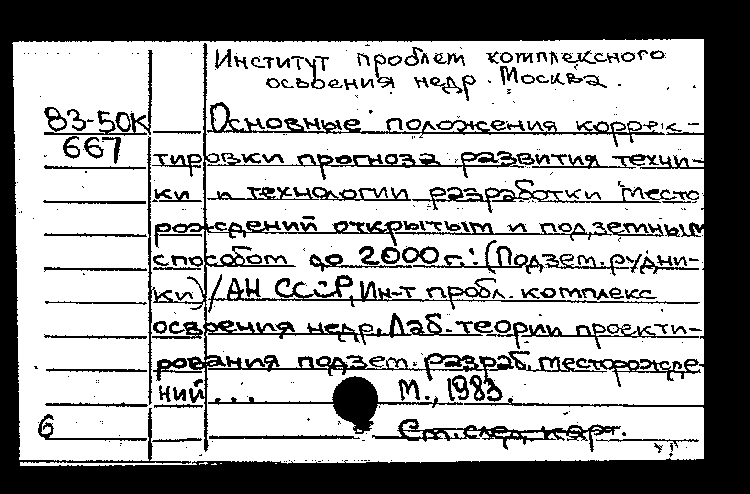 Институт проблем комплексного
освоения недр. Москва.
83-50К Основные положения коррек-
667 тировки прогноза развития техни-
ки и технологии разработки место
рождений открытым и подземным
способом до 2000 г.: (Подзем. рудни-
ки) / АН СССР, Ин-т пробл. комплекс
освоения недр, Лаб. теории проекти-
рования подзем. разраб. месторожде
ний... М., 1983.
6 См. след. карт.